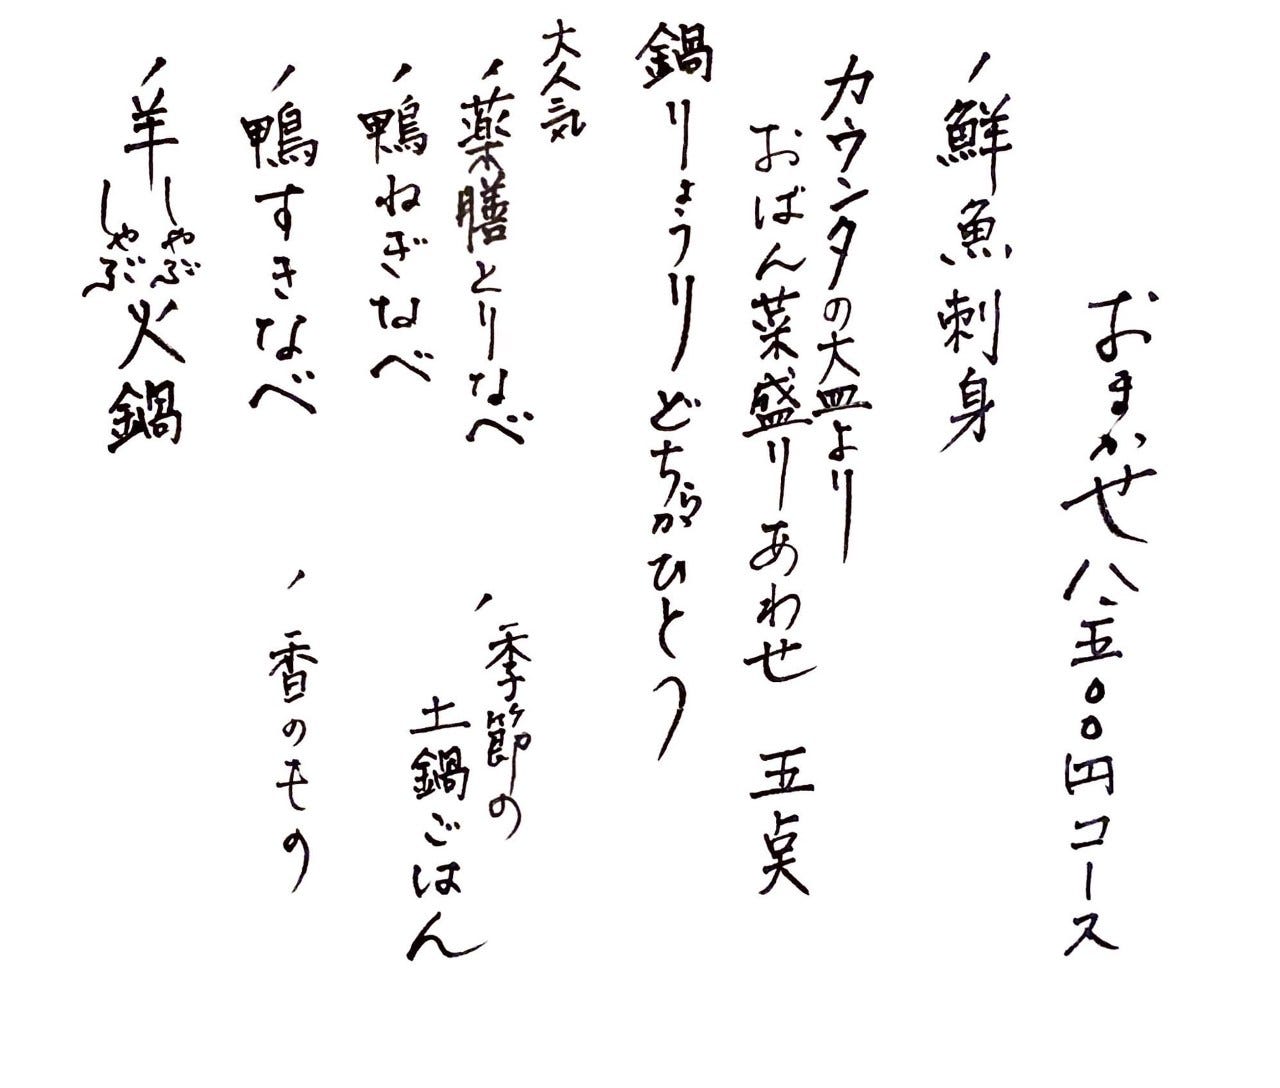 おまかせ八、五〇〇円コース
ノ鮮魚刺身
カウンタの大皿より
おばん菜盛りあわせ 五点
鍋りょうりどちらかひとつ
大人気
ノ薬膳とりなべ
ノ鴨ねぎなべ
ノ鴨すきなべ
ノ羊しゃぶしゃぶ火鍋
ノ季節の
土鍋ごはん
ノ香のもの